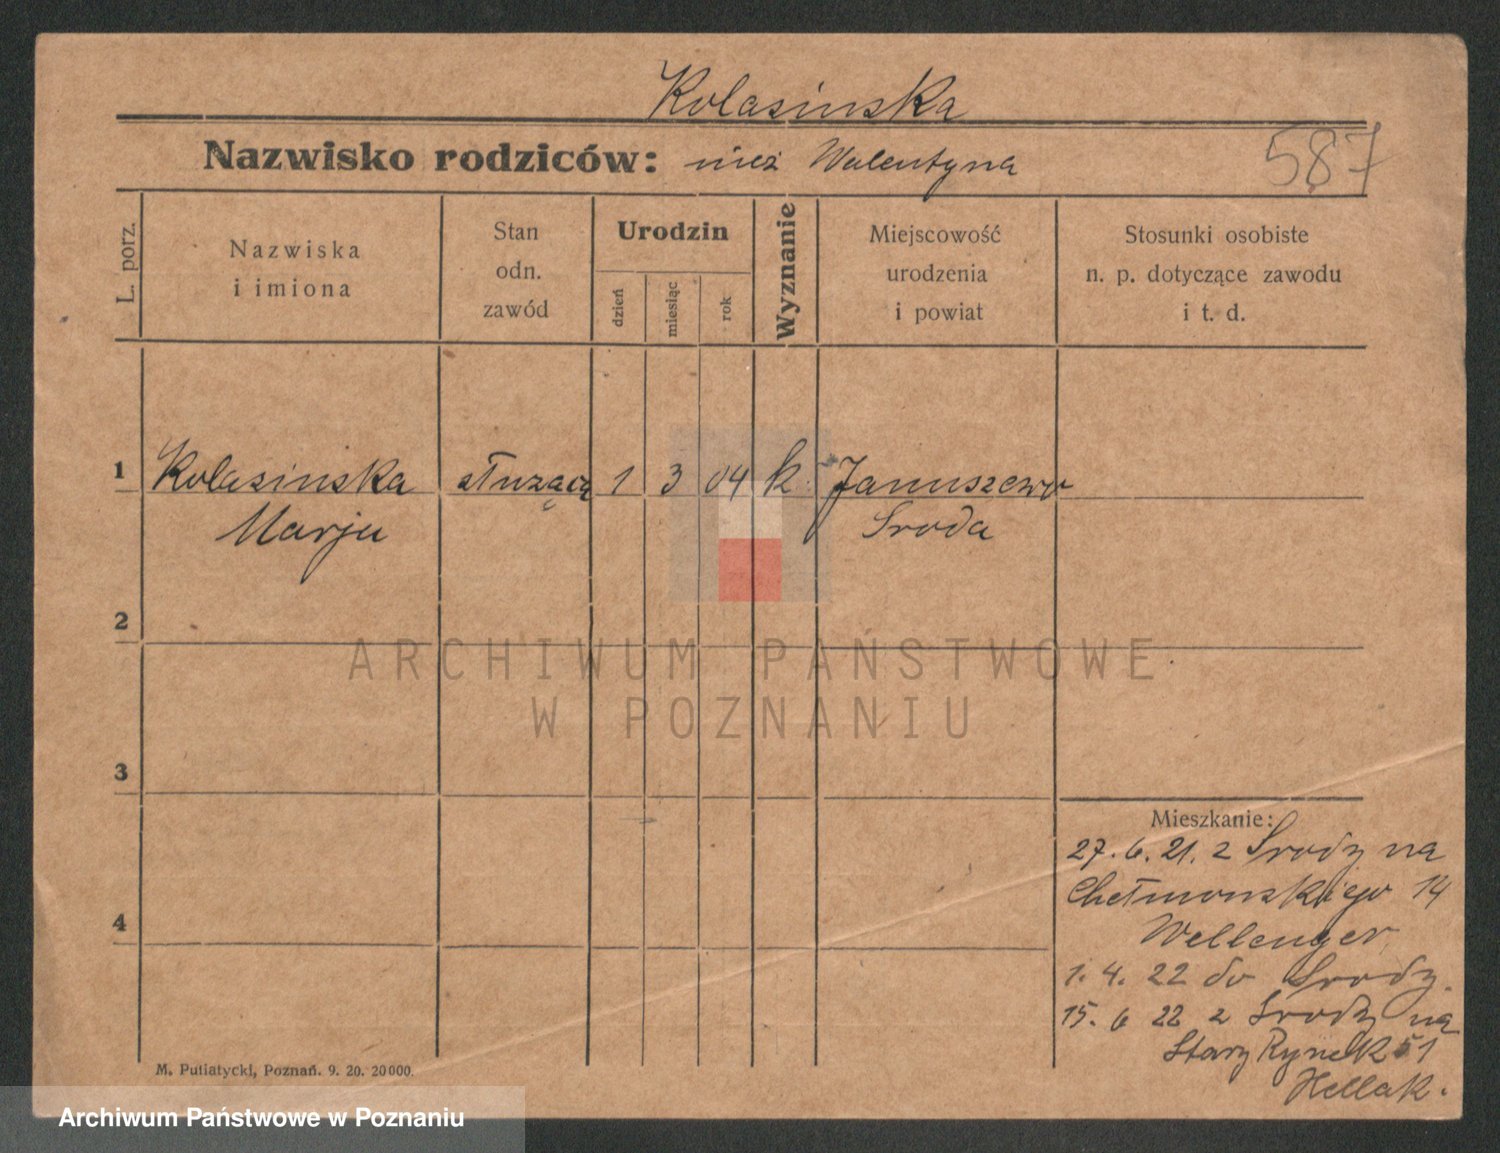 Kolasinska
Nazwisko rodziców: niez Walentyna
587
L. porz.
Nazwiska
i imiona
Stan
odn.
zawód
Urodzin
dzień
miesiąc
rok
Wyznanie
Miejscowość
urodzenia
i powiat
Stosunki osobiste
n. p. dotyczące zawodu
i t. d.
1 Kolasinska służącą 1 3 04 k Januszewo
Marja Sroda
2
3
4
Mieszkanie:
27. 6. 21. z Srody na
Chełmonskiego 14
Wellenger
1. 4. 22 do Srody.
15. 6 22 z Srody na
Stary Rynek 51
Hellak.
M. Putiatycki, Poznań. 9. 20. 20000.
ARCHIWUM PAŃSTWOWE
W POZNANIU
Archiwum Państwowe w Poznaniu